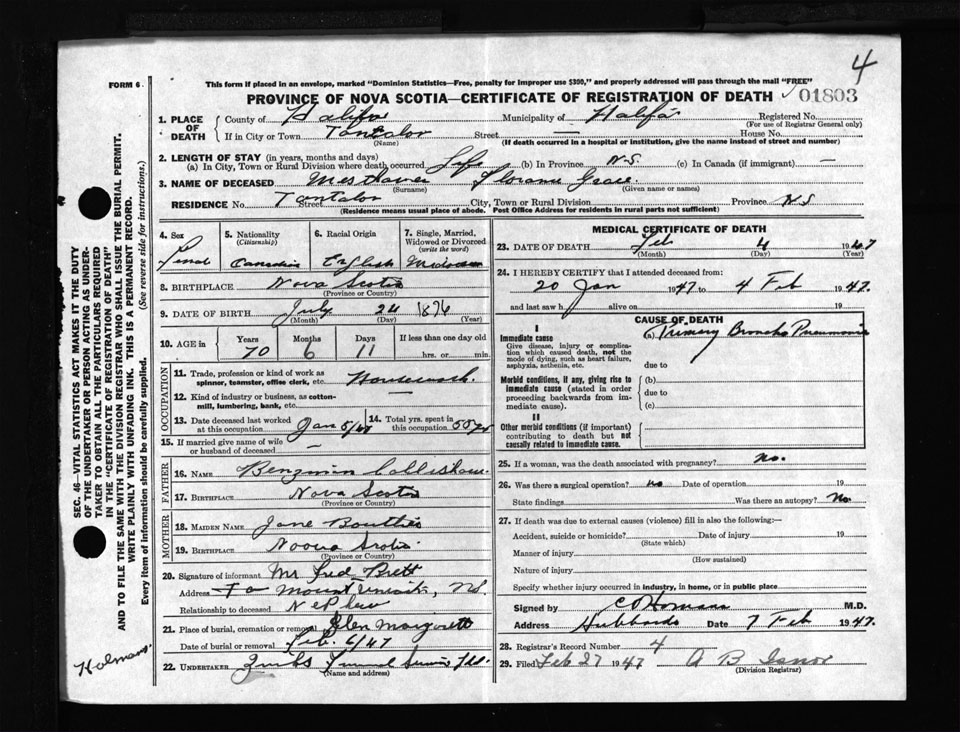 4
FORM 6.
This form if placed in an envelope, marked "Dominion Statistics—Free, penalty for improper use $300," and properly addressed will pass through the mail "FREE"
PROVINCE OF NOVA SCOTIA—CERTIFICATE OF REGISTRATION OF DEATH
01803
1. PLACE OF DEATH
County of Halifax Municipality of Halifax Registered No.
(For use of Registrar General only)
If in City or Town Tantalon Street — House No.
(Name) (If death occurred in a hospital or institution, give the name instead of street and number)
2. LENGTH OF STAY (in years, months and days)
(a) In City, Town or Rural Division where death occurred Life (b) In Province N.S. (c) In Canada (if immigrant) —
3. NAME OF DECEASED Florence Grace.
(Surname) (Given name or names)
RESIDENCE No. Tantalon Street City, Town or Rural Division Province N.S
(Residence means usual place of abode. Post Office Address for residents in rural parts not sufficient)
4. Sex
5. Nationality (Citizenship) Canadian
6. Racial Origin English
7. Single, Married, Widowed or Divorced (write the word)
8. BIRTHPLACE Nova Scotia
(Province or Country)
9. DATE OF BIRTH July 24 1876
(Month) (Day) (Year)
10. AGE in Years 70 Months 6 Days 11 If less than one day old hrs. or min.
OCCUPATION
11. Trade, profession or kind of work as spinner, teamster, office clerk, etc. Housework.
12. Kind of industry or business, as cotton-mill, lumbering, bank, etc. —
13. Date deceased last worked at this occupation Jan 5/47
14. Total yrs. spent in this occupation 50 yrs
15. If married give name of wife or husband of deceased —
FATHER
16. NAME Benjamin
17. BIRTHPLACE Nova Scotia
(Province or Country)
MOTHER
18. MAIDEN NAME Jane
19. BIRTHPLACE Noova Scotia
(Province or Country)
20. Signature of informant Mr Fred Brett
Address Mount Uniack, N.S.
Relationship to deceased Nephew
21. Place of burial, cremation or removal Glen Margarett
Date of burial or removal Feb. 6/47
22. UNDERTAKER Funeral Service Ltd.
(Name and address)
MEDICAL CERTIFICATE OF DEATH
23. DATE OF DEATH Feb 4 1947
(Month) (Day) (Year)
24. I HEREBY CERTIFY that I attended deceased from:
20 Jan 1947 to 4 Feb 1947.
and last saw h alive on 19
CAUSE OF DEATH
I
Immediate cause
Give disease, injury or complication which caused death, not the mode of dying, such as heart failure, asphyxia, asthenia, etc.
(a) Primary Broncho Pneumonia
due to
Morbid conditions, if any, giving rise to immediate cause (stated in order proceeding backwards from immediate cause).
(b)
due to
(c)
II
Other morbid conditions (if important) contributing to death but not causally related to immediate cause.
25. If a woman, was the death associated with pregnancy? no.
26. Was there a surgical operation? no Date of operation 19
State findings Was there an autopsy? No.
27. If death was due to external causes (violence) fill in also the following:—
Accident, suicide or homicide? Date of injury 19
(State which)
Manner of injury
(How sustained)
Nature of injury
Specify whether injury occurred in industry, in home, or in public place
Signed by M.D.
Address Hubbards Date 7 Feb 1947.
28. Registrar's Record Number 4
29. Filed Feb 27 1947 A B Isnor
(Division Registrar)
SEC. 46—VITAL STATISTICS ACT MAKES IT THE DUTY
OF THE UNDERTAKER OR PERSON ACTING AS UNDERTAKER TO OBTAIN ALL THE PARTICULARS REQUIRED
IN THE "CERTIFICATE OF REGISTRATION OF DEATH"
AND TO FILE THE SAME WITH THE DIVISION REGISTRAR WHO SHALL ISSUE THE BURIAL PERMIT.
WRITE PLAINLY WITH UNFADING INK. THIS IS A PERMANENT RECORD.
Every item of information should be carefully supplied. (See reverse side for instructions.)